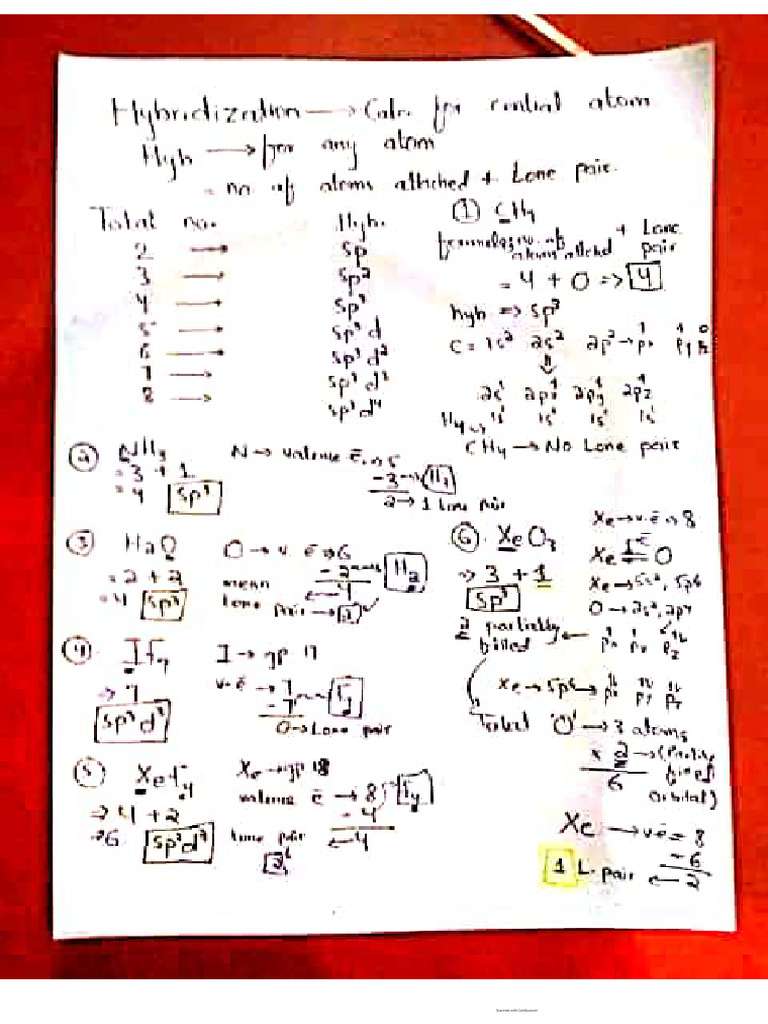 Hybridization → Calc. for central atom
Hyb → for any atom
= no. of atoms attached + Lone pair.
Total no. Hyb.
2 → sp
3 → sp2
4 → sp3
5 → sp3d
6 → sp3d2
7 → sp3d3
8 → sp3d4
① CH4
no. of atoms attached + Lone pair
= 4 + 0 => 4
hyb => sp3
C = 1s2 2s2 2p2 →
2s1 2px 2py 2pz
H4 → 1s1 1s1 1s1 1s1
CH4 → No Lone pair
② NH3
= 3 + 1
= 4 sp3
N → valence e. => 5
-3 → H3
2 → 1 Lone pair
③ H2O
= 2 + 2
= 4 sp3
O → v. e => 6
-2 → H2
4
mean
Lone pair → 2
④ If7
=> 7
sp3d3
I → gp 17
v.e → 7
-7 → F7
0 → Lone pair
⑤ Xef4
=> 4 + 2
=> 6 sp3d2
Xe → gp 18
valence e → 8 → F4
- 4
4
Lone pair
2
⑥ XeO3
=> 3 + 1
sp3
Xe → v.e => 8
Xe O
Xe → 5s2, 5p6
O → 2s2, 2p4
2 partially filled ← px py pz
Xe → 5p6 →
Total 'O' → 3 atoms
x 2 → (Partially filled orbital)
6
Xe → v.e = 8
- 6
1 L. pair ← 2